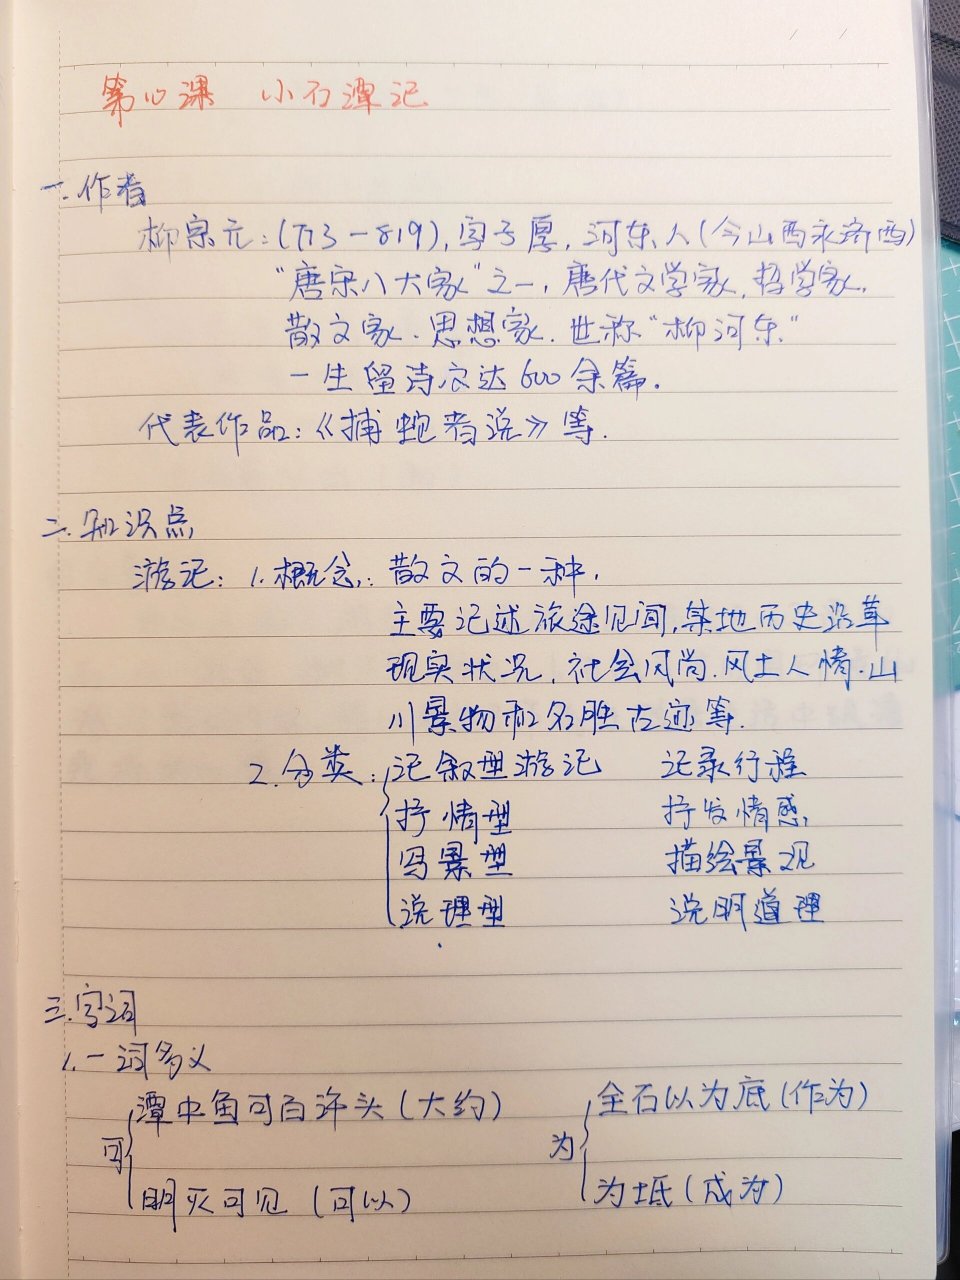 第10课 小石潭记
一.作者
柳宗元:(773-819),字子厚,河东人(今山西永济西)
“唐宋八大家”之一,唐代文学家,哲学家,
散文家.思想家.世称“柳河东”
一生留诗文达600余篇.
代表作品:《捕蛇者说》等.
二.知识点
游记: 1.概念: 散文的一种,
主要记述旅途见闻,某地历史沿革
现实状况,社会风尚.风土人情.山
川景物和名胜古迹等.
2.分类: 记叙型游记 记录行程
抒情型 抒发情感
写景型 描绘景观
说理型 说明道理
三.字词
1.一词多义
可 潭中鱼可百许头(大约) 为 全石以为底(作为)
明灭可见(可以) 为坻(成为)